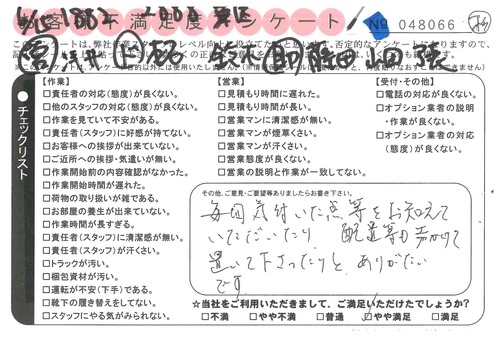 お客様不満足度アンケート！
No 048066
チェックリスト
【作業】
□責任者の対応(態度)が良くない。
□他のスタッフの対応(態度)が良くない。
□作業を見ていて不安がある。
□責任者(スタッフ)に好感が持てない。
□お客様への挨拶が出来ていない。
□ご近所への挨拶・気遣いが無い。
□作業開始前の内容確認がなかった。
□作業開始時間が遅れた。
□荷物の取り扱いが雑である。
□お部屋の養生が出来ていない。
□作業時間が長すぎる。
□責任者(スタッフ)に清潔感が無い。
□責任者(スタッフ)が汗くさい。
□トラックが汚い。
□梱包資材が汚い。
□運転が不安(下手)である。
□靴下の履き替えをしてない。
□スタッフにやる気がみられない。
【営業】
□見積もり時間に遅れた。
□見積もり時間が長い。
□営業マンに清潔感が無い。
□営業マンが煙草くさい。
□営業マンが汗くさい。
□営業態度が良くない。
□営業の説明と作業が一致してない。
【受付・その他】
□電話の対応が良くない。
□オプション業者の説明
・作業が良くない。
□オプション業者の対応
(態度)が良くない。
その他、ご意見・ご要望等ありましたらお書き下さい。
毎回気付いた点等をお知らせ
いただいたり 配達等も声かけて
置いて下さったりと ありがたい
です
☆当社をご利用いただきまして、ご満足いただけたでしょうか？
□不満 □やや不満 □普通 □やや満足 □満足